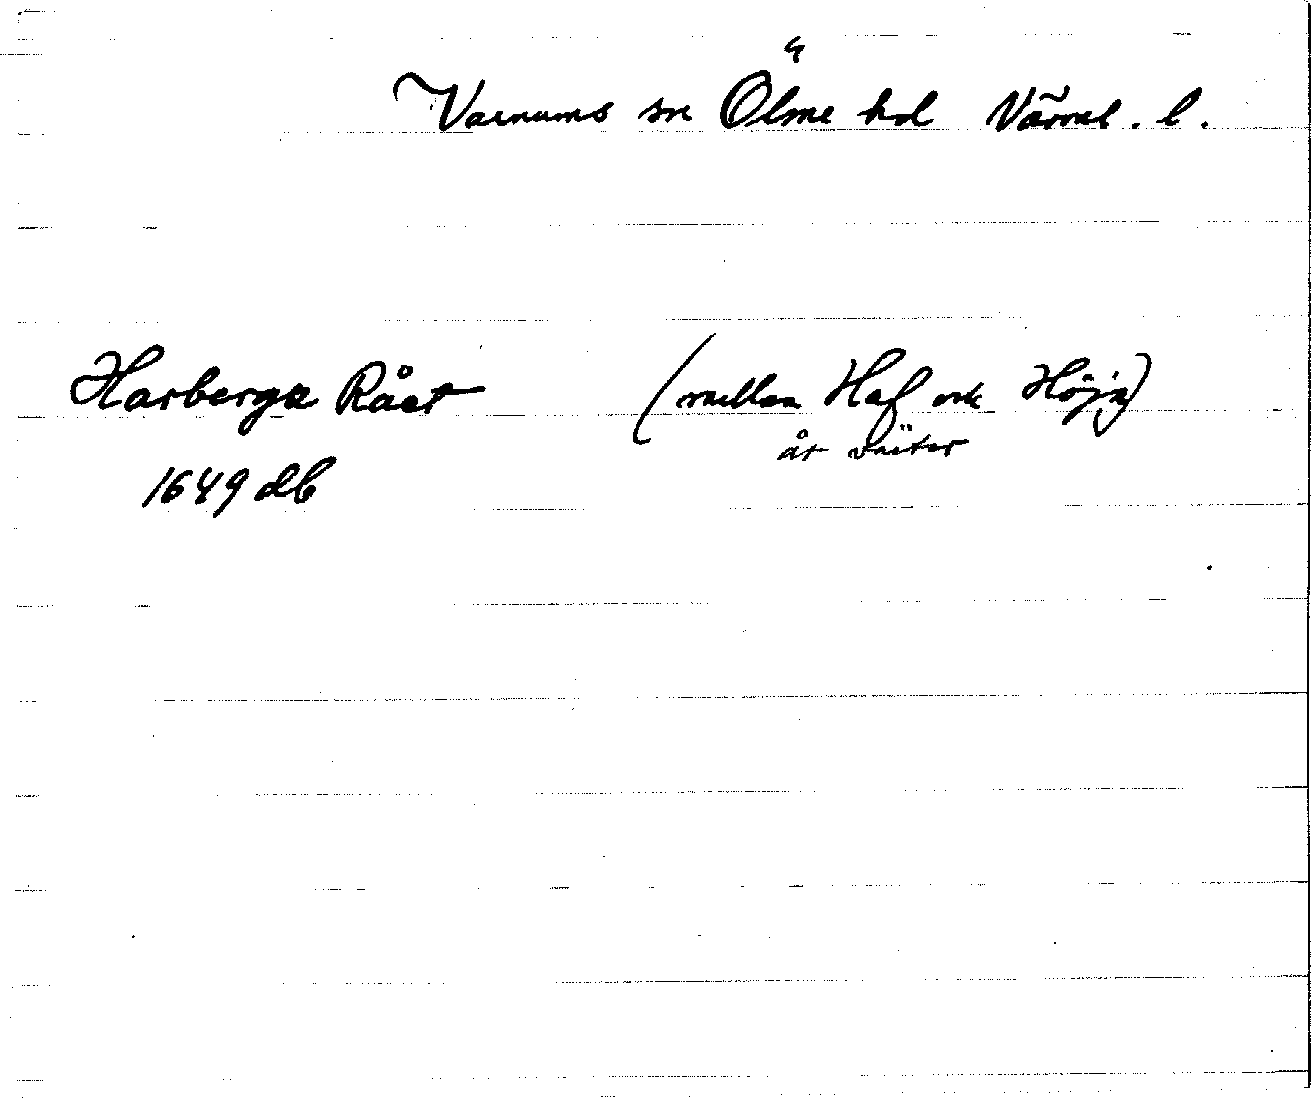 Varnums sn Ölme hd Värml. l.
Harberga Råst (mellan Haf och Höja)
åt väster
1649 db